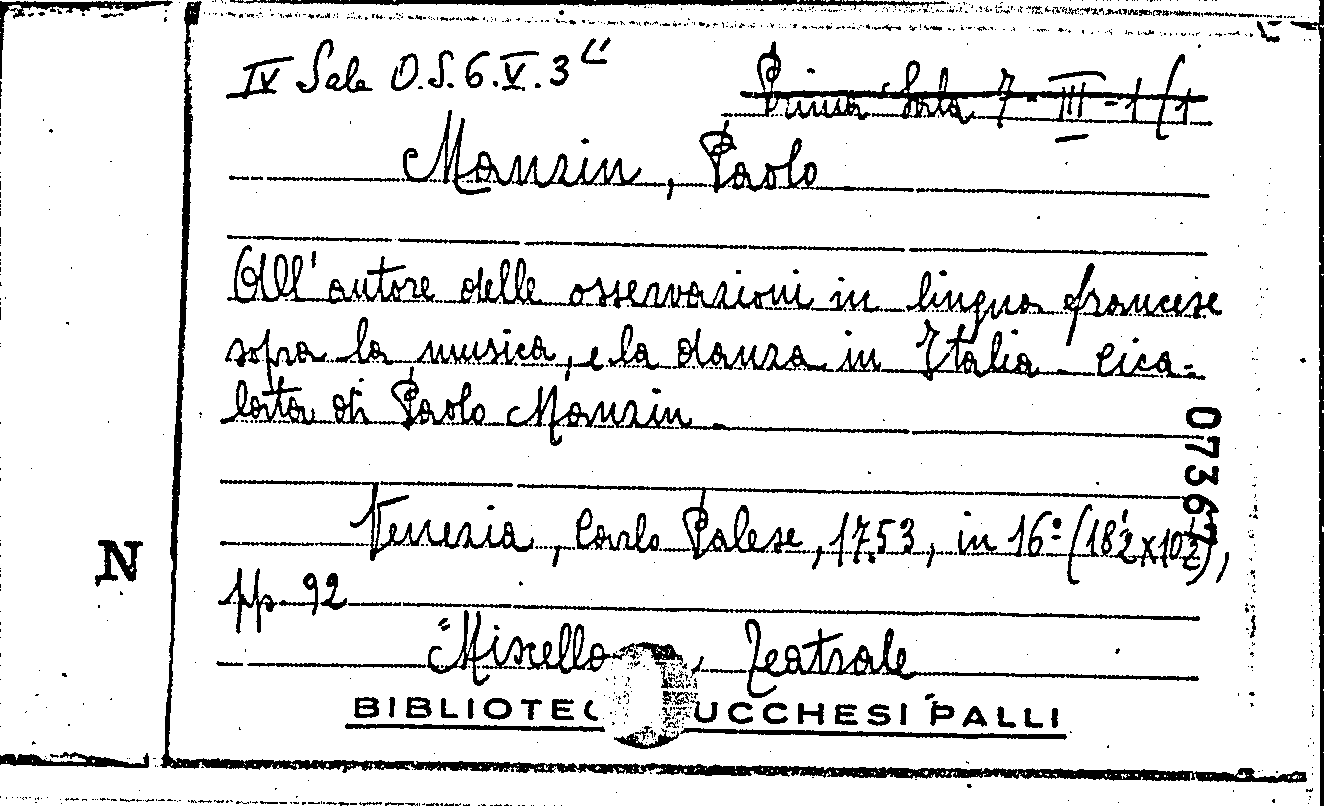 IV Sala O.S.6.V.3"
Prima Sala 7-III-1/1
Manzin, Paolo
All'autore delle osservazioni in lingua francese
sopra la musica, e la danza in Italia - Cica-
lata di Paolo Manzin.
Venezia, Carlo Palese, 1753, in 16º (18½x10½),
pp. 92
"Miscella , Teatrale
BIBLIOTEC UCCHESI PALLI
N
07367